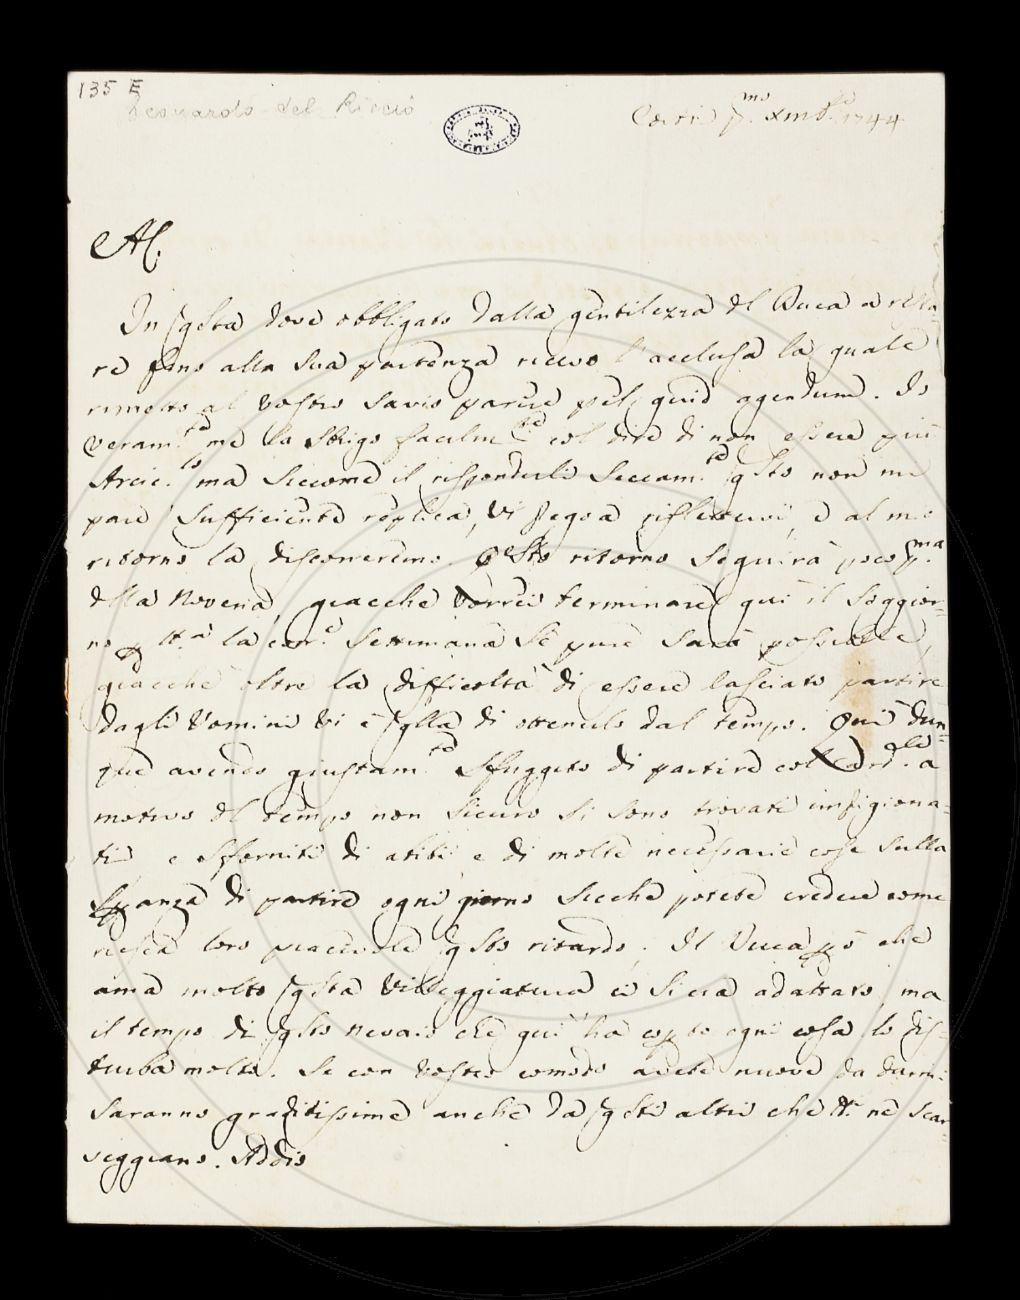 135 E
Leonardo del Riccio
Corti p.mo Xmb.e 1744
AC.
In qsta dove obbligato dalla gentilezza del Duca a resta-
re fino alla sua partenza ricevo l'acclusa la quale
rimetto al vostro savio parere pel quid agendum. Io
veram.te me la sbrigo facilm.te col dire di non essere più
Arcic.lo ma siccome il risponderli seccam.te qsto non mi
pare sufficiente replica, vi prego a riflettervi e al mio
ritorno la discorreremo. Qesto ritorno seguirà poco p.ma
della Novena, giacche vorrei terminare qui il soggior-
no tt.a la cor.e settimana se pure sarà possibile,
giacche oltre la difficoltà di essere lasciato partire
dagli Uomini vi è qlla di ottenerlo dal tempo. Qui dun-
que avendo giustam.te sfuggito di partire col Card.le a
motivo del tempo non sicuro si sono trovati imprigiona-
ti e sforniti di abiti e di molte necessarie cose sulla
speranza di partire ogni giorno sicche potete credere come
riesca loro piacevole qsto ritardo. Il Duca pò che
ama molto qsta Villeggiatura ci si era adattato, ma
il tempo di qsto nevaio che qui ha copto ogni cosa lo dis-
turba molto. Se con vostro comodo avete nuove da darmi
saranno graditissime anche da qsti altri che tt.i ne scar-
seggiano. Addio